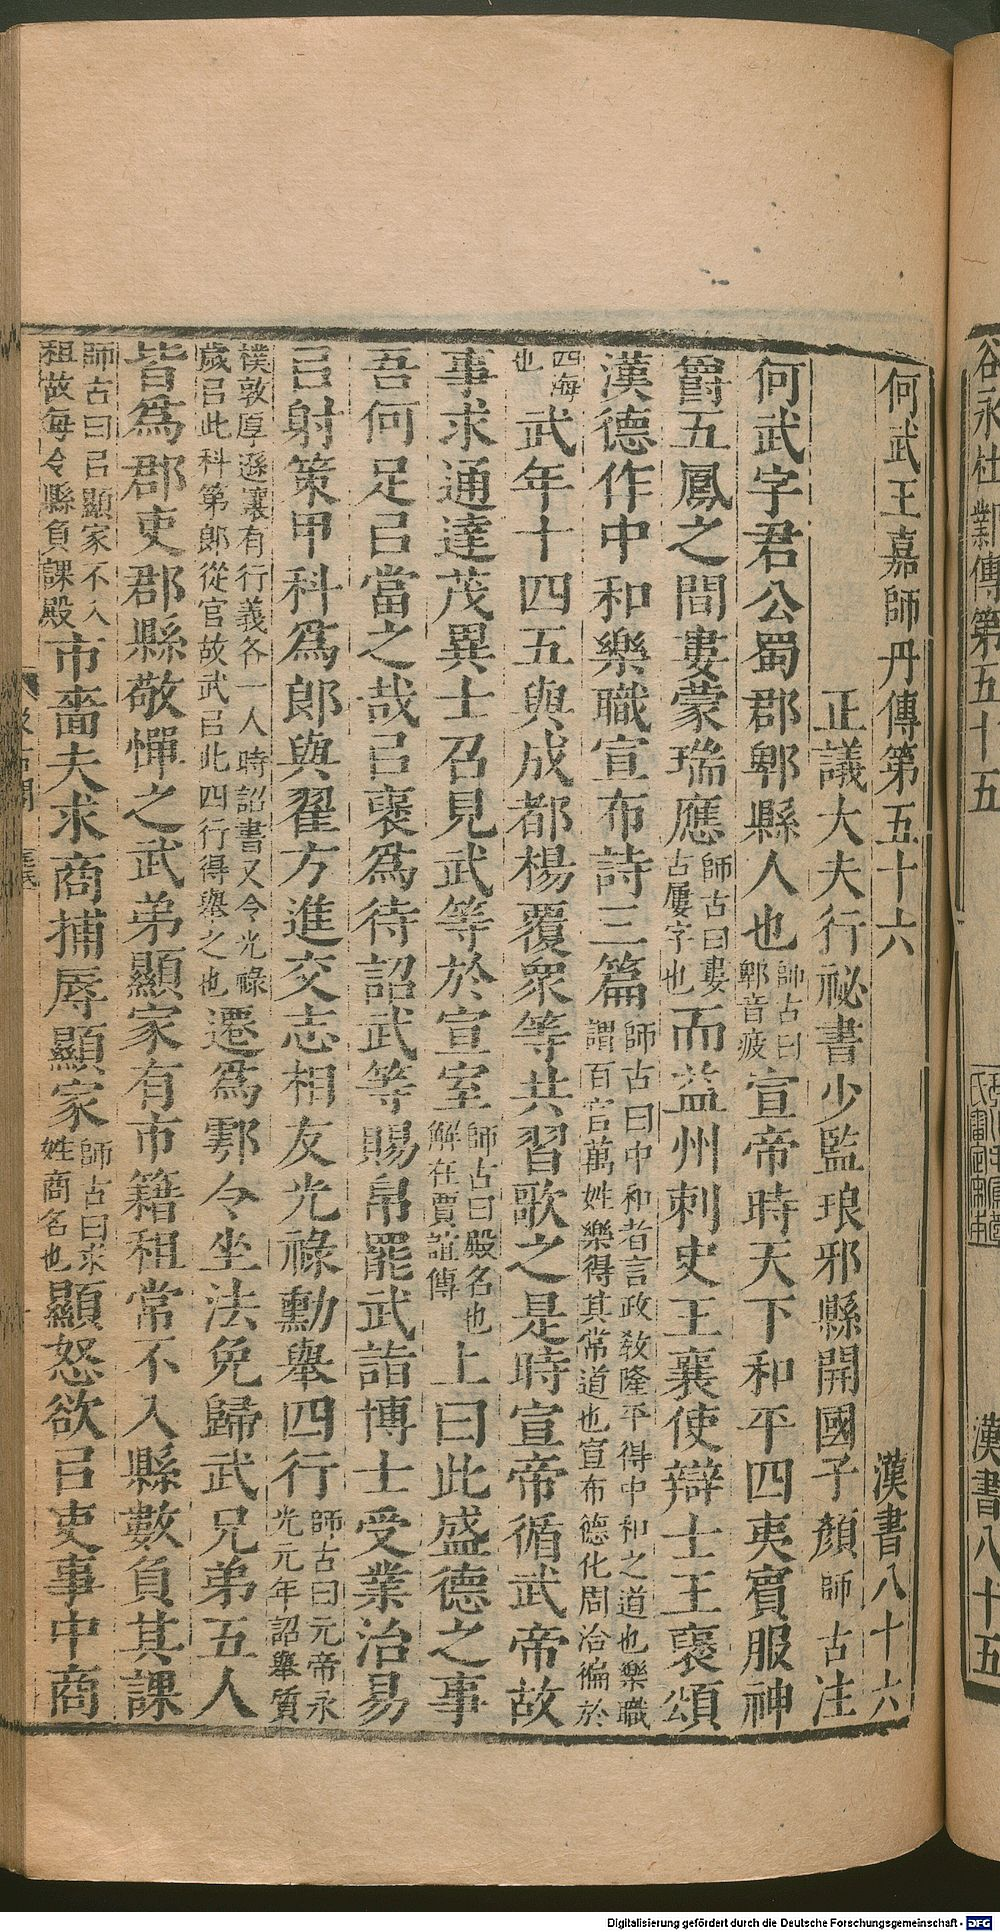 谷永杜鄴傳第五十五 漢書八十五
何武王嘉師丹傳第五十六 漢書八十六
正議大夫行祕書少監琅邪縣開國子顏 師古 注
何武字君公蜀郡郫縣人也師古曰郫音疲宣帝時天下和平四夷賓服神
爵五鳳之間婁蒙瑞應師古曰婁古屢字也而益州刺史王襄使辯士王襃頌
漢德作中和樂職宣布詩三篇師古曰中和者言政敎隆平得中和之道也樂職謂百官萬姓樂得其常道也宣布德化周洽徧於
四海也武年十四五與成都楊覆衆等共習歌之是時宣帝循武帝故
事求通達茂異士召見武等於宣室師古曰殿名也解在賈誼傳上曰此盛德之事
吾何足㠯當之哉㠯襃爲待詔武等賜帛罷武詣博士受業治易
㠯射策甲科爲郎與翟方進交志相友光祿勳舉四行師古曰元帝永光元年詔舉質
樸敦厚遜讓有行義各一人時詔書又令光祿歲㠯此科第郎從官故武㠯此四行得舉之也遷爲鄠令坐法免歸武兄弟五人
皆爲郡吏郡縣敬憚之武弟顯家有市籍租常不入縣數負其課
師古曰㠯顯家不入租故每令縣負課殿市嗇夫求商捕辱顯家師古曰求姓商名也顯怒欲㠯吏事中商
Digitalisierung gefördert durch die Deutsche Forschungsgemeinschaft - DFG